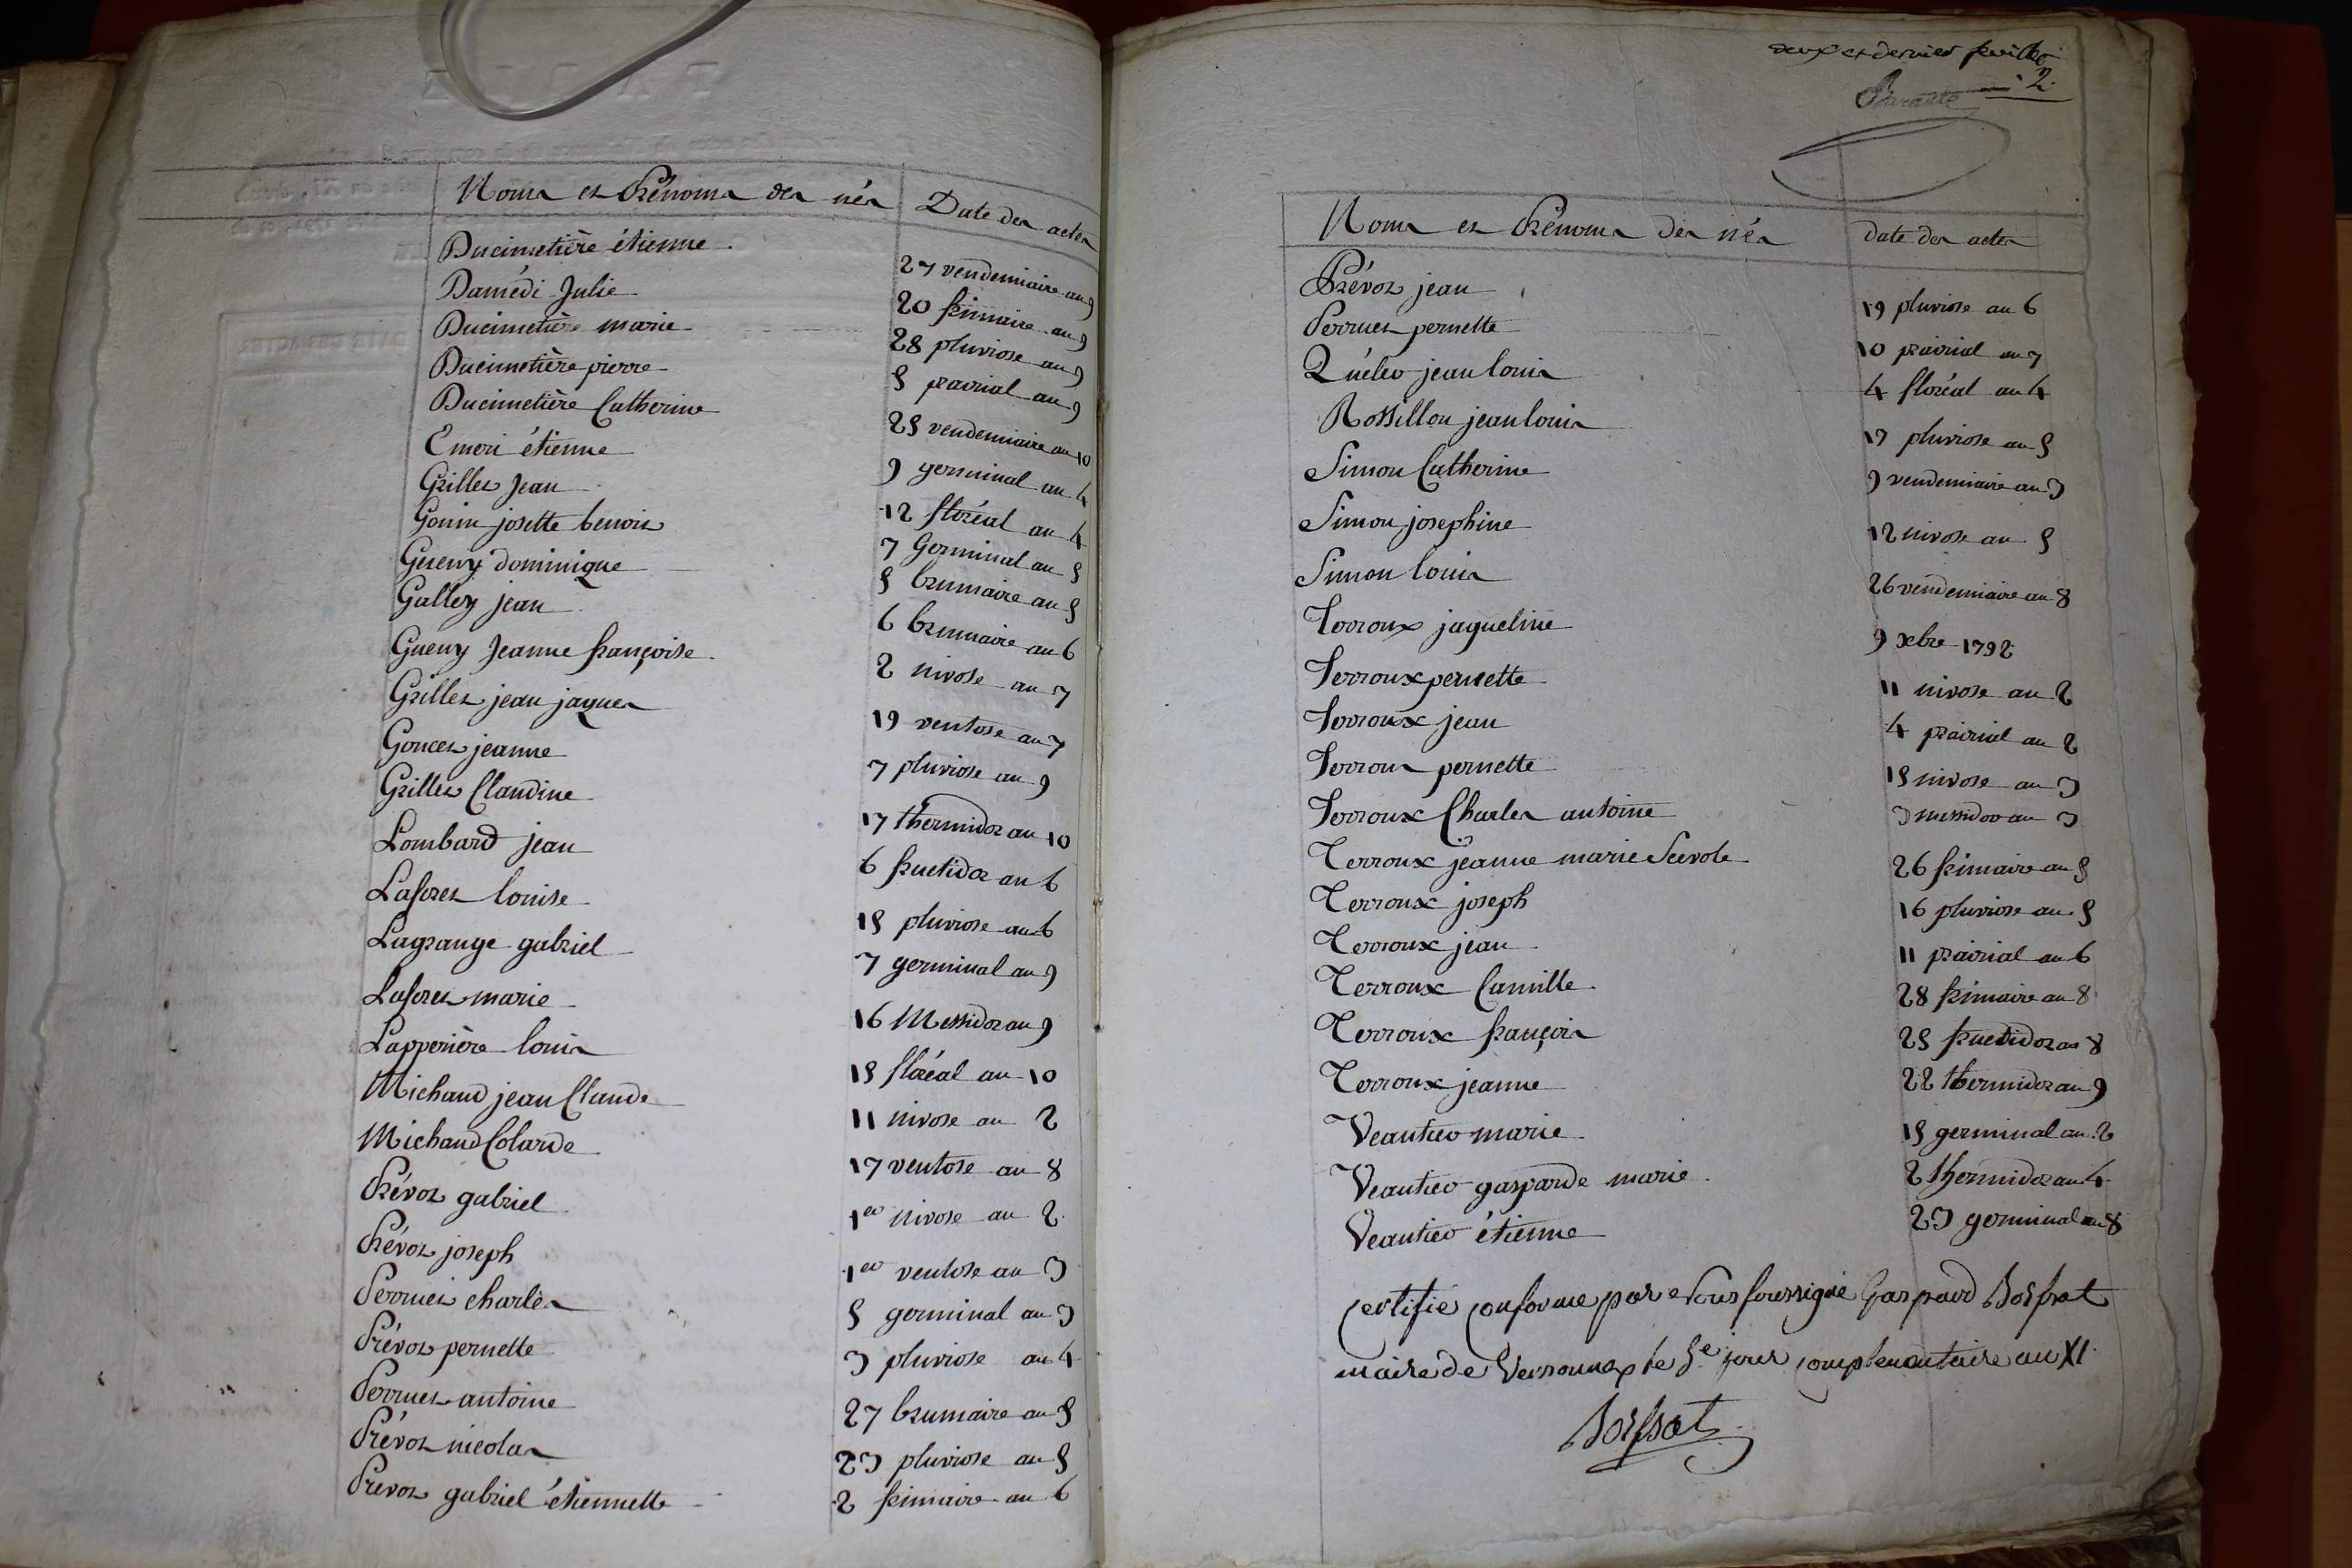 Noms et Prénoms des nés Date des actes
Ducimetière étienne 27 vendemiaire an 9
Damédi Julie 20 frimaire an 9
Ducimetière marie 28 pluviose an 9
Ducimetière pierre 5 prairial an 9
Ducimetière Catherine 25 vendemiaire an 10
Emeri étienne 9 germinal an 4
Grillet Jean 12 floréal an 4
Gonin josette benoit 7 Germinal an 5
dominique 5 brumaire an 5
Galley jean 6 brumaire an 6
Gueny Jeanne françoise 2 nivose an 7
Grillet jean jaques 19 ventose an 7
Goncet jeanne 7 pluviose an 9
Grillet Claudine 17 thermidor an 10
Lombard jean 6 fructidor an 6
Laforet louise 15 pluviose an 6
Lagrange gabriel 7 germinal an 9
Laforet marie 16 Messidor an 9
Lapperière louis 15 floréal an 10
Michaud jean Claude 11 nivose an 2
Michaud Colarde 17 ventose an 8
Prévot gabriel 1er nivose an 2
Prévot joseph 1er ventose an 3
Perruet charles 5 germinal an 3
Prévot pernette 3 pluviose an 4
Perruet antoine 27 brumaire an 5
Prévot nicolas 23 pluviose an 5
Prevot gabriel étiennette 2 frimaire an 6
deux et dernier feuillet
2
Noms et Prénoms des nés date des actes
Prévot jean 19 pluviose an 6
Perruet pernette 10 prairial an 7
Quéler jean louis 4 floréal an 4
Rossillon jean louis 17 pluviose an 5
Simon Catherine 9 vendemiaire an 3
Simon josephine 12 nivose an 5
Simon louis 26 vendemiaire an 8
Terroux jaqueline 9 xbre 1792
Terroux pernette 11 nivose an 2
Terroux jean 4 prairial an 2
Terroux pernette 15 nivose an 3
Terroux Charles antoine 3 messidor an 3
Terroux jeanne marie Scevole 26 frimaire an 5
Terroux joseph 16 pluviose an 5
Terroux jean 11 prairial an 6
Terroux Camille 28 frimaire an 8
Terroux françois 25 fructidor an 8
Terroux jeanne 22 thermidor an 9
Veautier marie 15 germinal an 2
Veautier gasparde marie 2 thermidor an 4
Veautier étienne 23 germinal an 8
certifié conforme par Nous soussigné Gaspard
maire de Versonnex le 5e jour complementaire an XI